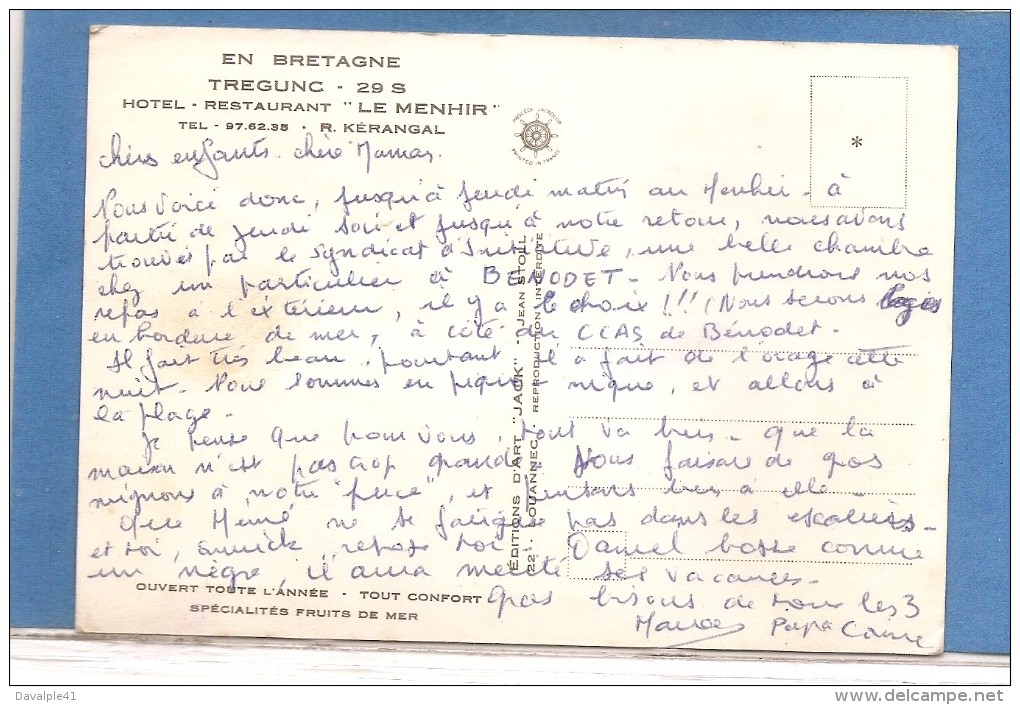 EN BRETAGNE
TREGUNC - 29 S
HOTEL - RESTAURANT "LE MENHIR"
TEL - 97.62.35 - R. KÉRANGAL
PROCÉDÉ JACKOLOR
PRINTED IN FRANCE
*
chers enfants. chère Maman.
Nous voici donc, jusqu'à jeudi matin au Menhir - à
partir de jeudi soir et jusqu'à notre retour, nous avons
trouvés par le Syndicat d'Initiative, une belle chambre
chez un particulier à BENODET - Nous prendrons nos
repas à l'extérieur, il y a le choix !!! (Nous serons logés
en bordure de mer, à côté du CCAS de Bénodet -
Il fait très beau, pourtant il a fait de l'orage cette
nuit - Nous sommes en pique-nique, et allons à
la plage -
Je pense que pour vous, tout va bien - que la
maison n'est pas trop grande - Nous faisons de gros
mignons à notre "puce", et pensons bien à elle -
Que Mémé ne se fatigue pas dans les escaliers -
et toi, Annick, repose toi - Daniel bosse comme
un nègre, il aura mérité ses vacances -
gros bisous de tous les 3
Papa
ÉDITIONS D'ART "JACK" - JEAN STOLL
22 - LOUANNEC - REPRODUCTION INTERDITE
OUVERT TOUTE L'ANNÉE - TOUT CONFORT
SPÉCIALITÉS FRUITS DE MER
Davalple41
www.delcampe.net